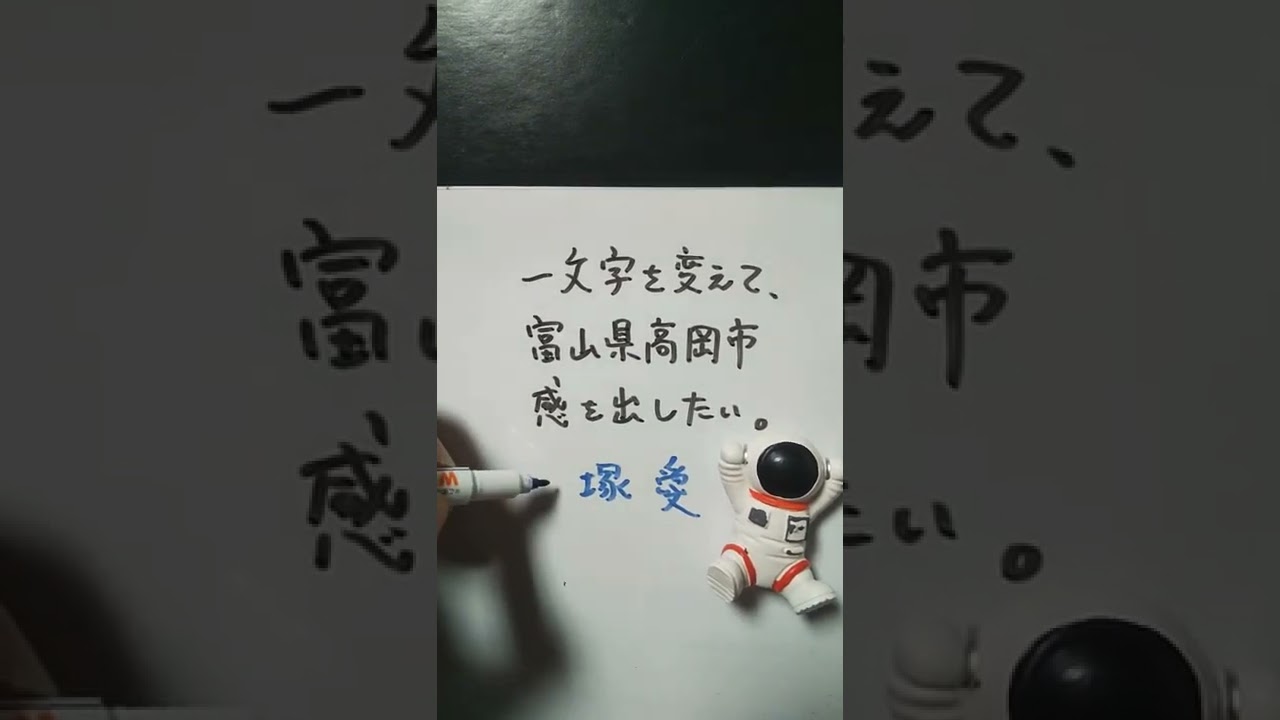 一文字を変えて、
富山県高岡市
感を出したい。
塚 愛